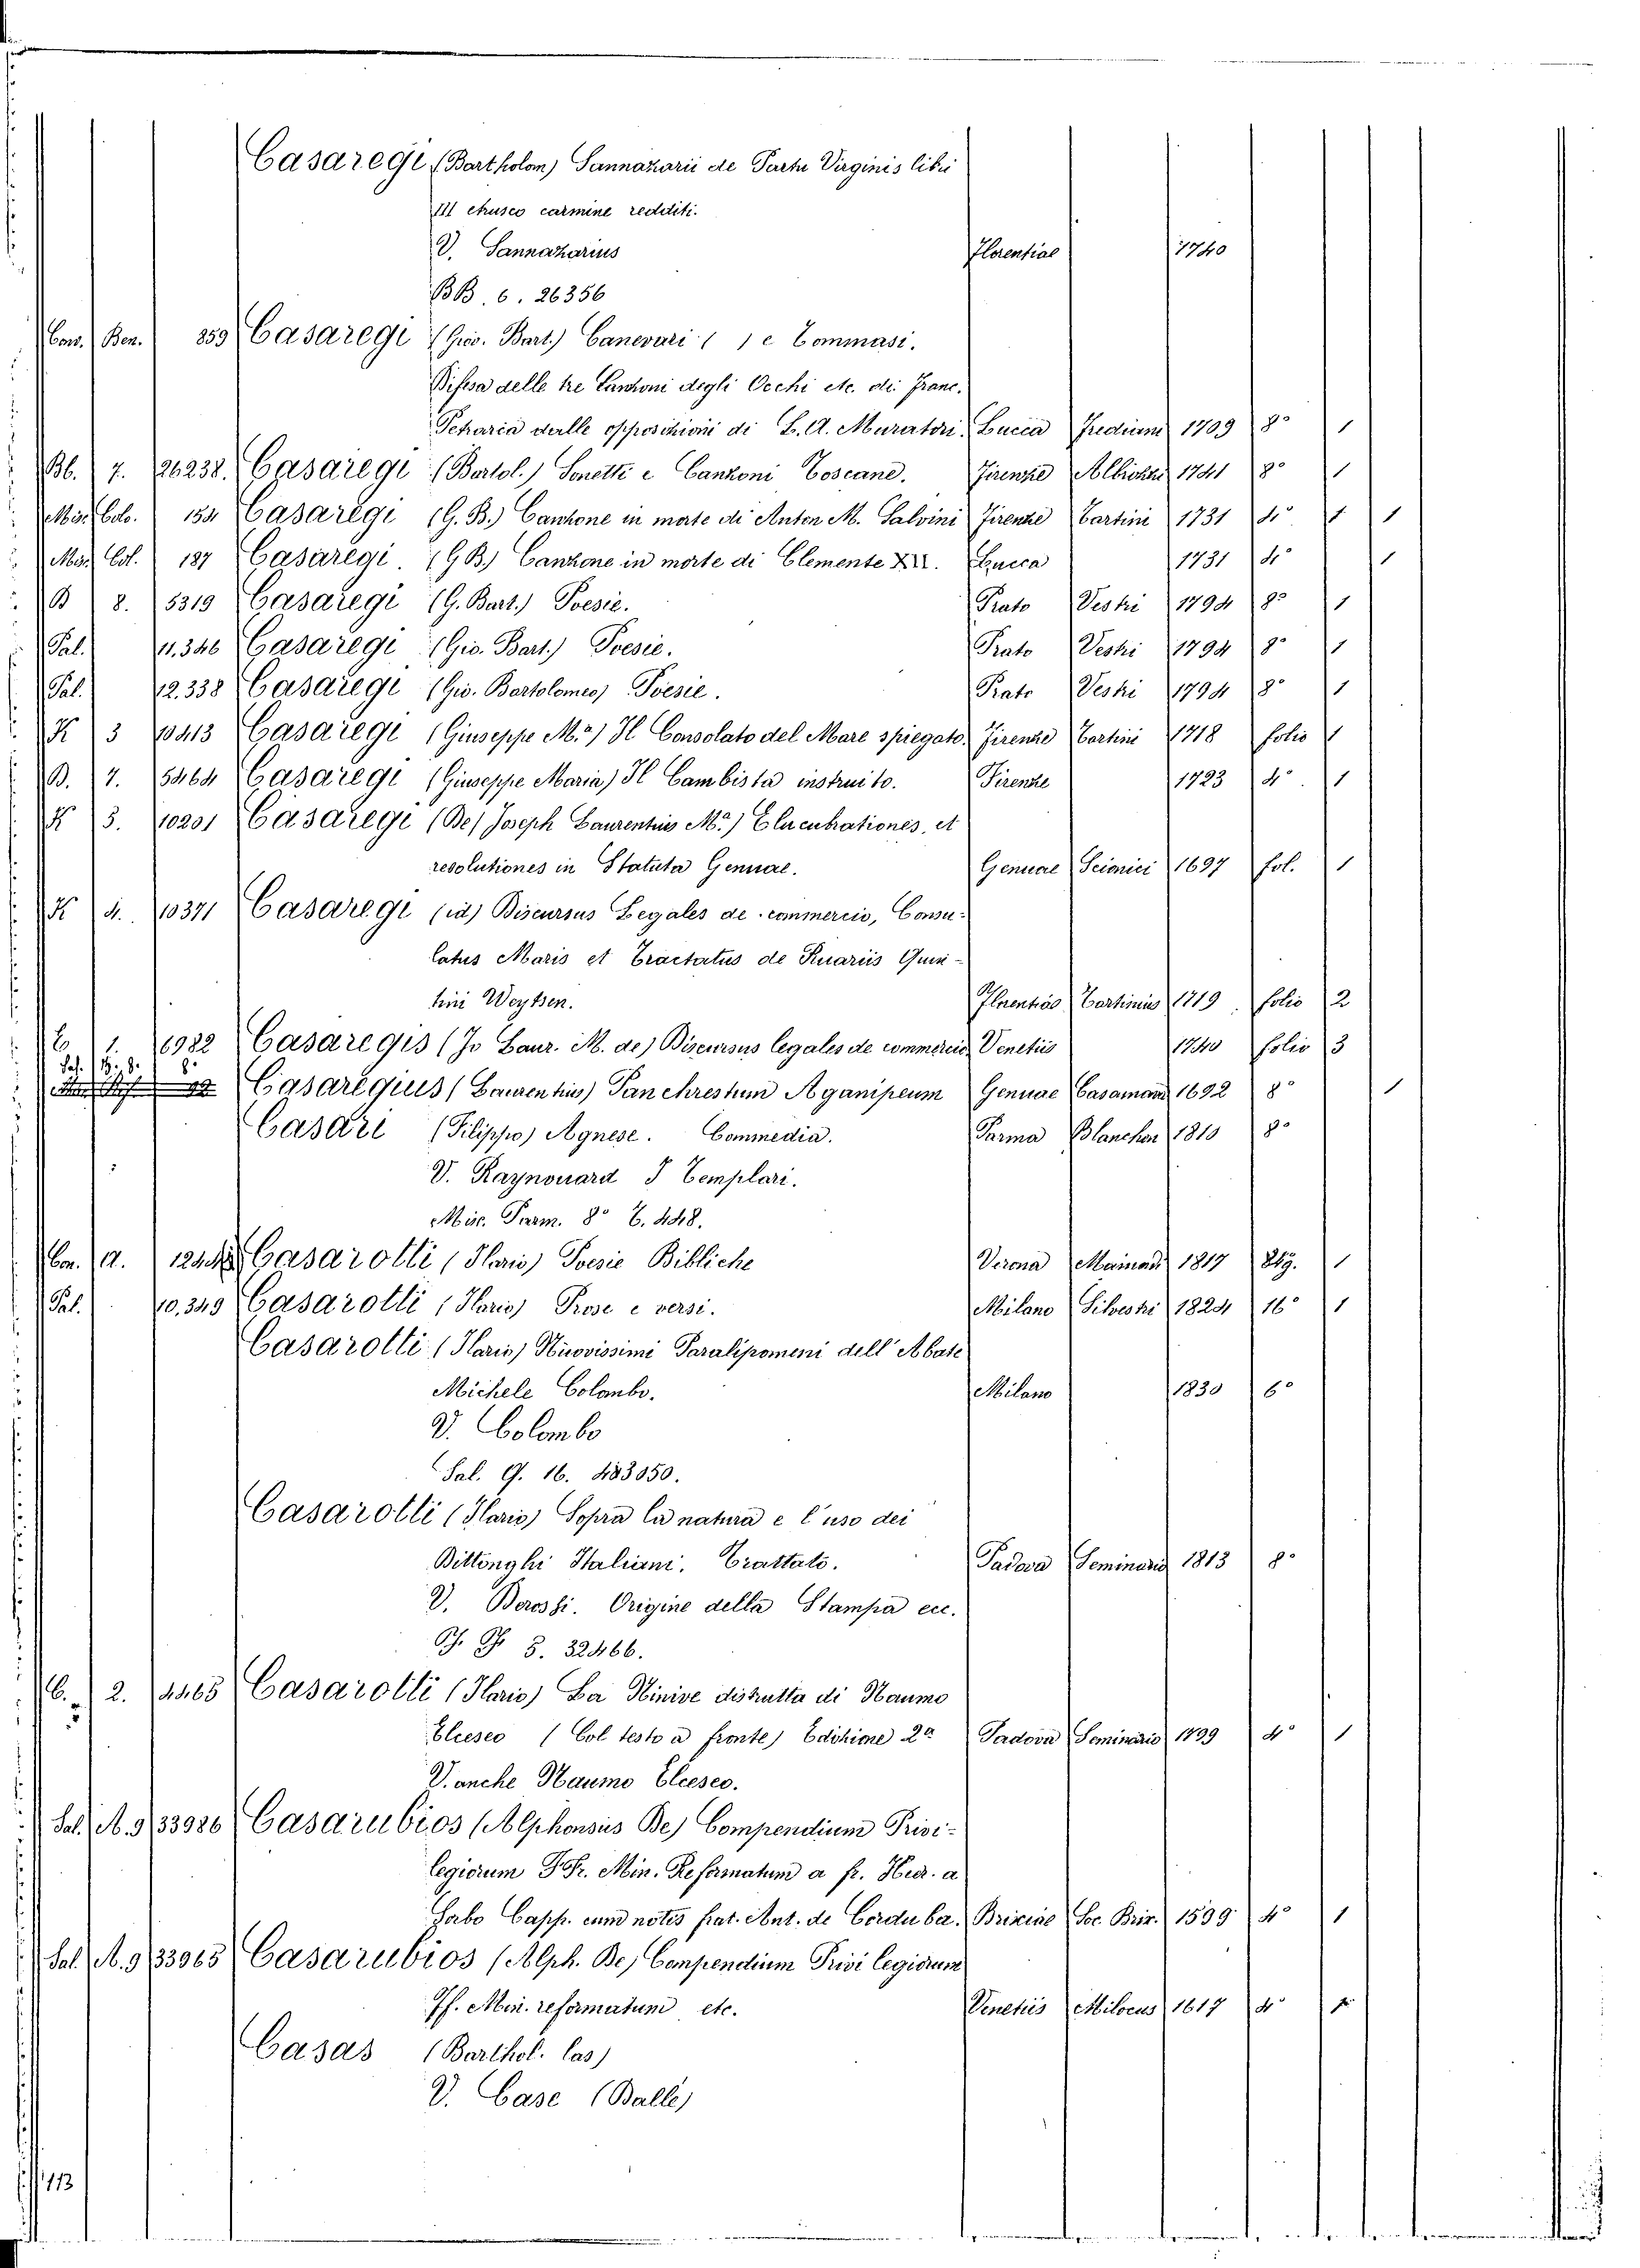 Casaregi (Bartholom) Sannazarii de Partu Virginis libri
III etrusco carmine redditi.
V. Sannazarius Florentiae 1740
BB. 6. 26356
Con. Ben. 859 Casaregi (Gio. Bart.) Canevari ( ) e Tommasi.
Difesa delle tre Canzoni degli Occhi etc. di Franc.
Petrarca dalle opposizioni di L. A. Muratori. Lucca Frediani 1709 8º 1
Bb. 7. 26238. Casaregi (Bartol.) Sonetti e Canzoni Toscane. Firenze Albizzini 1741 8º 1
Mis. Colo. 154 Casaregi (G. B.) Canzone in morte di Anton M. Salvini Firenze Tartini 1731 4º 1 1
Mis. Col. 187 Casaregi (GB) Canzone in morte di Clemente XII. Lucca 1731 4º 1
B 8. 5319 Casaregi (G. Bart.) Poesie. Prato Vestri 1794 8º 1
Pal. 11.346 Casaregi (Gio. Bart.) Poesie. Prato Vestri 1794 8º 1
Pal. 12.338 Casaregi (Gio. Bartolomeo) Poesie. Prato Vestri 1794 8º 1
K 3 10413 Casaregi (Giuseppe M.ª) Il Consolato del Mare spiegato. Firenze Tartini 1718 folio 1
B. 7. 5464 Casaregi (Giuseppe Maria) Il Cambista instruito. Firenze 1723 4º. 1
K 3. 10201 Casaregi (De) Joseph Laurentius M.ª) Elucubrationes, et
resolutiones in Statuta Genuae. Genuae Scionici 1697 fol. 1
K 4. 10371 Casaregi (id) Discursus Legales de commercio, Consu-
latus Maris et Tractatus de Avariis Quin-
tini Weytsen. Florentiae Tartinius 1719. folio 2
C 1. 6982 Casaregis (Jo Laur. M. de) Discursus legales de commercio Venetiis 1740 folio 3
Casaregius (Laurentius) Panchrestum Aganipeum Genuae Casamara 1692 8º 1
Casari (Filippo) Agnese. Commedia. Parma Blanchon 1810 8º
V. Raynouard I Templari.
Mis. Parm. 8º T. 448.
Con. a. Casarotti (Ilario) Poesie Bibliche Verona Mainardi 1817 8º g. 1
Pal. 10,349 Casarotti (Ilario) Prose e versi. Milano Silvestri 1824 16º 1
Casarotti (Ilario) Nuovissimi Paralipomeni dell' Abate
Michele Colombo. Milano 1830 6º
V. Colombo
Sal. G. 16. 483050.
Casarotti (Ilario) Sopra la natura e l'uso dei
Dittonghi Italiani. Trattato. Padova Seminario 1813 8º
V. Berossi. Origine della Stampa ecc.
5. 32466.
C. 2. 4465 Casarotti (Ilario) La Ninive distrutta di Naumo
Elceseo (Col testo a fronte) Edizione 2ª Padova Seminario 1899 4º 1
V. anche Naumo Elceseo.
Sal. A. 9 33986 Casarubios (Alphonsus De) Compendium Privi-
legiorum FFr. Min. Reformatum a fr. Hier. a
Sorbo Capp. cum notis frat. Ant. de Corduba. Brixiae Soc. Brix. 1599 4º 1
Sal. A. 9 33965 Casarubios (Alph. De) Compendium Privilegiorum
ff. Min. reformatum etc. Venetiis Milocus 1617 4º 1
Casas (Barthol. las)
V. Case (Dalle)
113